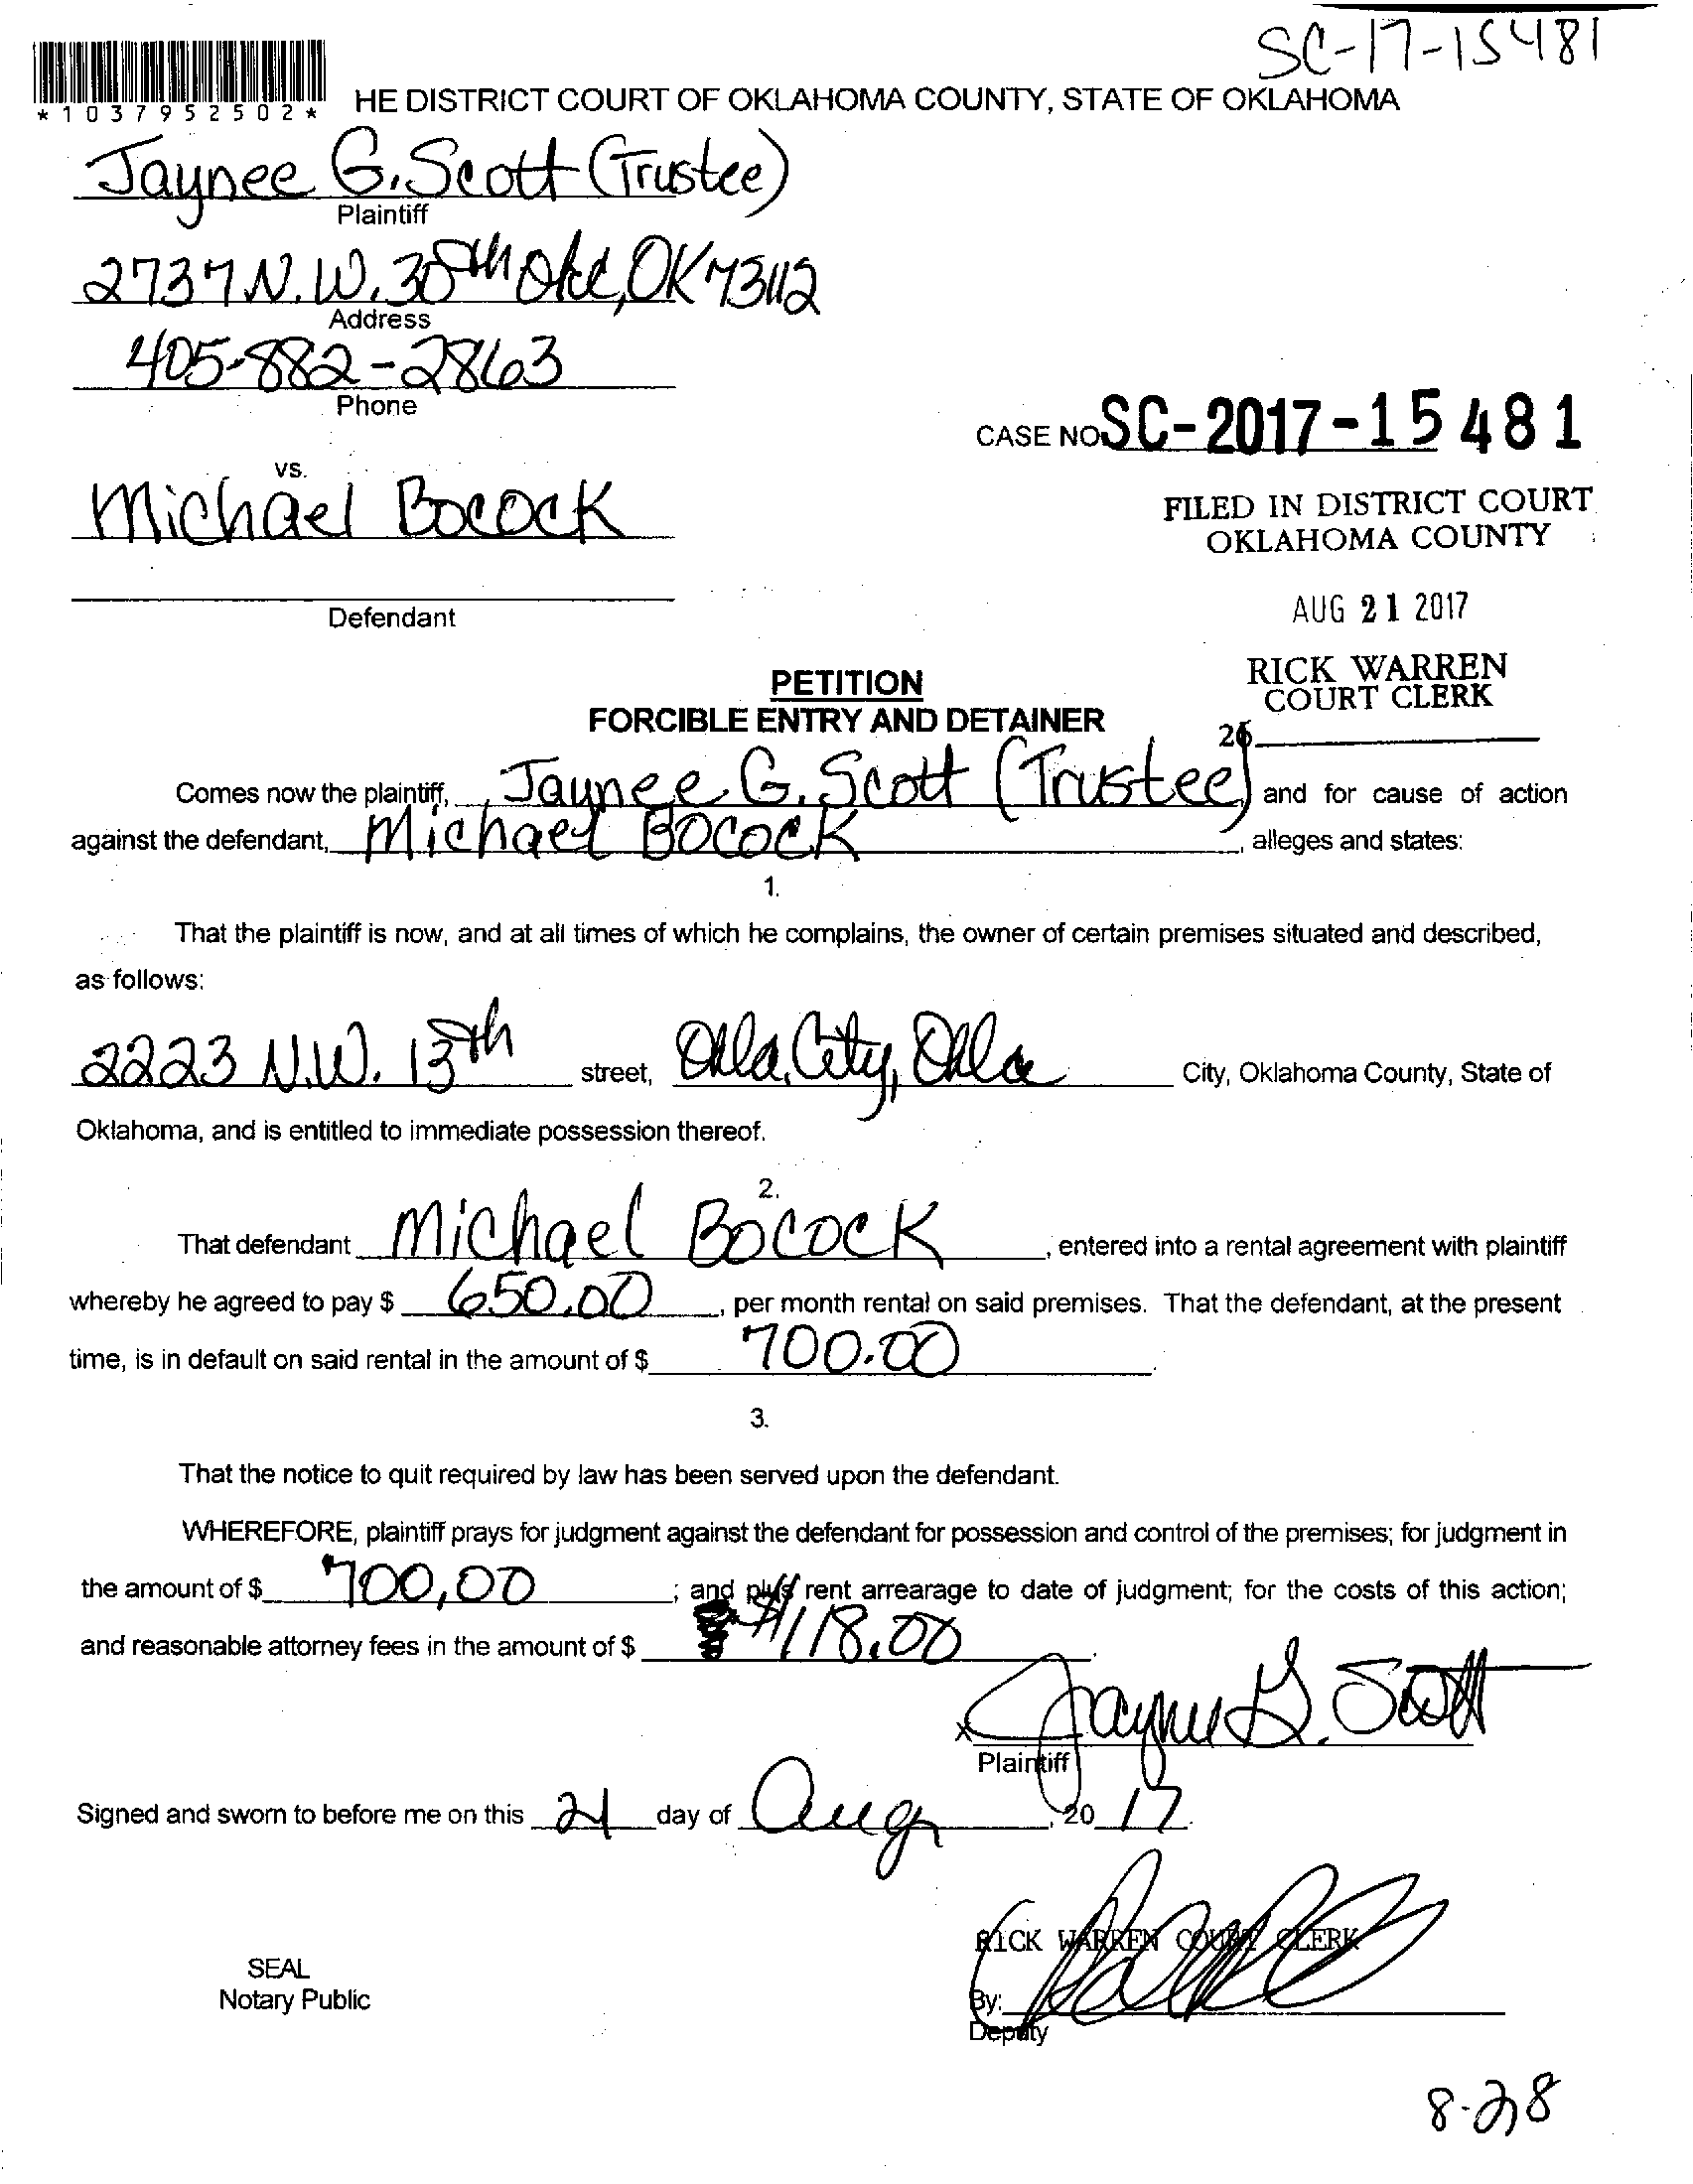 SC-17-15481
*1037952502*
HE DISTRICT COURT OF OKLAHOMA COUNTY, STATE OF OKLAHOMA
Jaynee G. Scott (Trustee)
Plaintiff
2737 N.W. 30th Okc, OK 73112
Address
405-882-2863
Phone
CASE NO. SC-2017-15481
vs.
Michael Bocock
FILED IN DISTRICT COURT
OKLAHOMA COUNTY
Defendant
AUG 21 2017
RICK WARREN
COURT CLERK
PETITION
FORCIBLE ENTRY AND DETAINER
Comes now the plaintiff, Jaynee G. Scott (Trustee) and for cause of action
against the defendant, Michael Bocock, alleges and states:
1.
That the plaintiff is now, and at all times of which he complains, the owner of certain premises situated and described,
as follows:
2223 N.W. 13th street, Okla. City, Okla City, Oklahoma County, State of
Oklahoma, and is entitled to immediate possession thereof.
2.
That defendant Michael Bocock, entered into a rental agreement with plaintiff
whereby he agreed to pay $ 650.00, per month rental on said premises. That the defendant, at the present
time, is in default on said rental in the amount of $ 700.00.
3.
That the notice to quit required by law has been served upon the defendant.
WHEREFORE, plaintiff prays for judgment against the defendant for possession and control of the premises; for judgment in
the amount of $ 700,00; and plus rent arrearage to date of judgment; for the costs of this action;
and reasonable attorney fees in the amount of $ $118.00.
x Jaynee G. Scott
Plaintiff
Signed and sworn to before me on this 21 day of Aug, 2017.
RICK WARREN COURT CLERK
SEAL
Notary Public
By:
Deputy
8-28